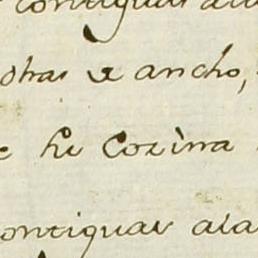 contiguas ala
ohas de ancho,
Cozina
ontiguas ala